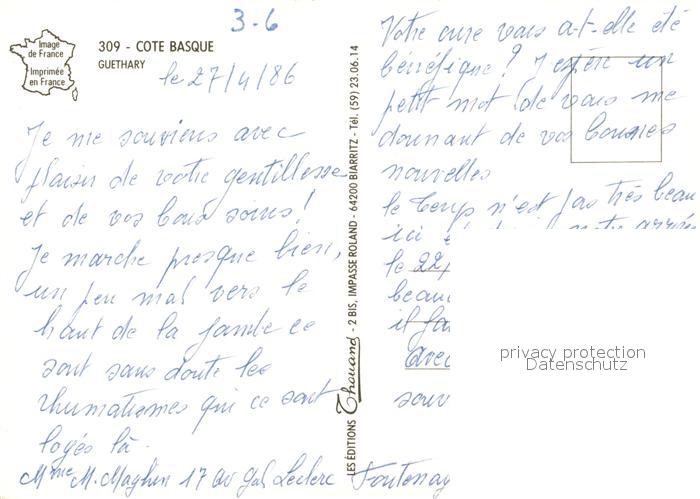 3-6
Image
de France
Imprimée
en France
309 - COTE BASQUE
GUETHARY
le 27/4/86
Je me souviens avec
plaisir de votre gentillesse
et de vos bons soins!
Je marche presque bien,
un peu mal vers le
haut de la jambe ce
sont sans doute les
rhumatismes qui ce sont
logés là.
Mme M. Maghin 17 av Gal Leclerc Fontenay
LES ÉDITIONS Thouand - 2 BIS, IMPASSE ROLAND - 64200 BIARRITZ - Tél. (59) 23.06.14
Votre cure vous a-t-elle été
bénéfique? J'espère un
petit mot de vous me
donnant de vos bonnes
nouvelles
le temps n'est pas très beau
ici
le 22
beau
il fa
avec
souv
privacy protection
Datenschutz